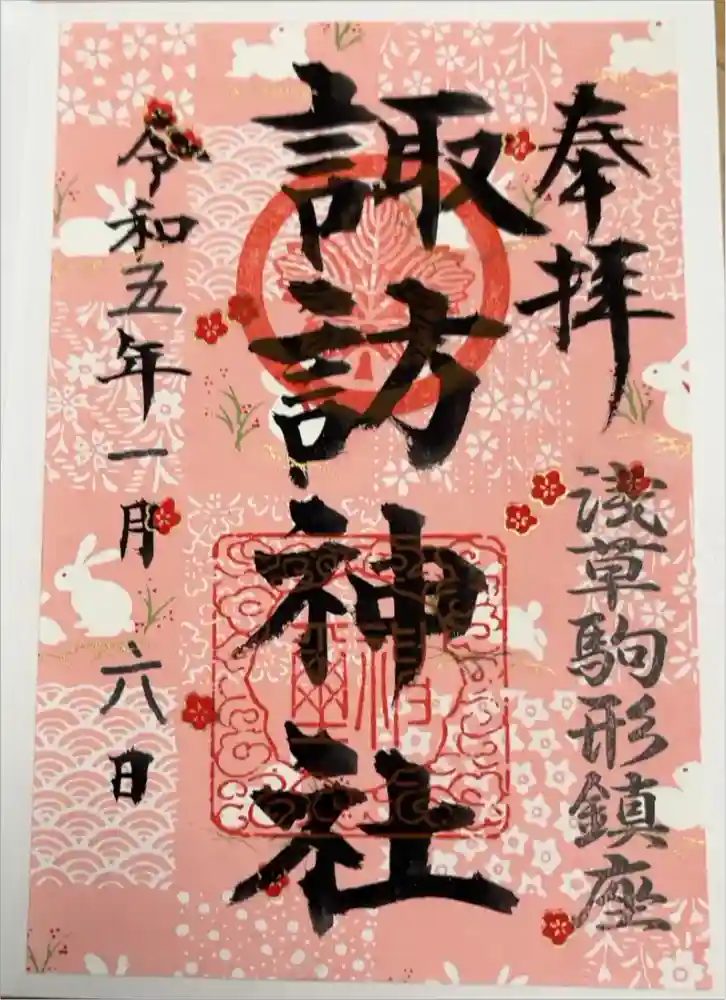 奉拝
浅草駒形鎮座
諏訪神社
令和五年一月六日